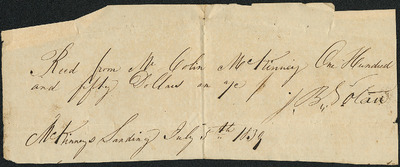 Recd from Mr Colin McKinney One Hundred
and fifty Dollars on
J. B.
McKinneys Landing July 5th